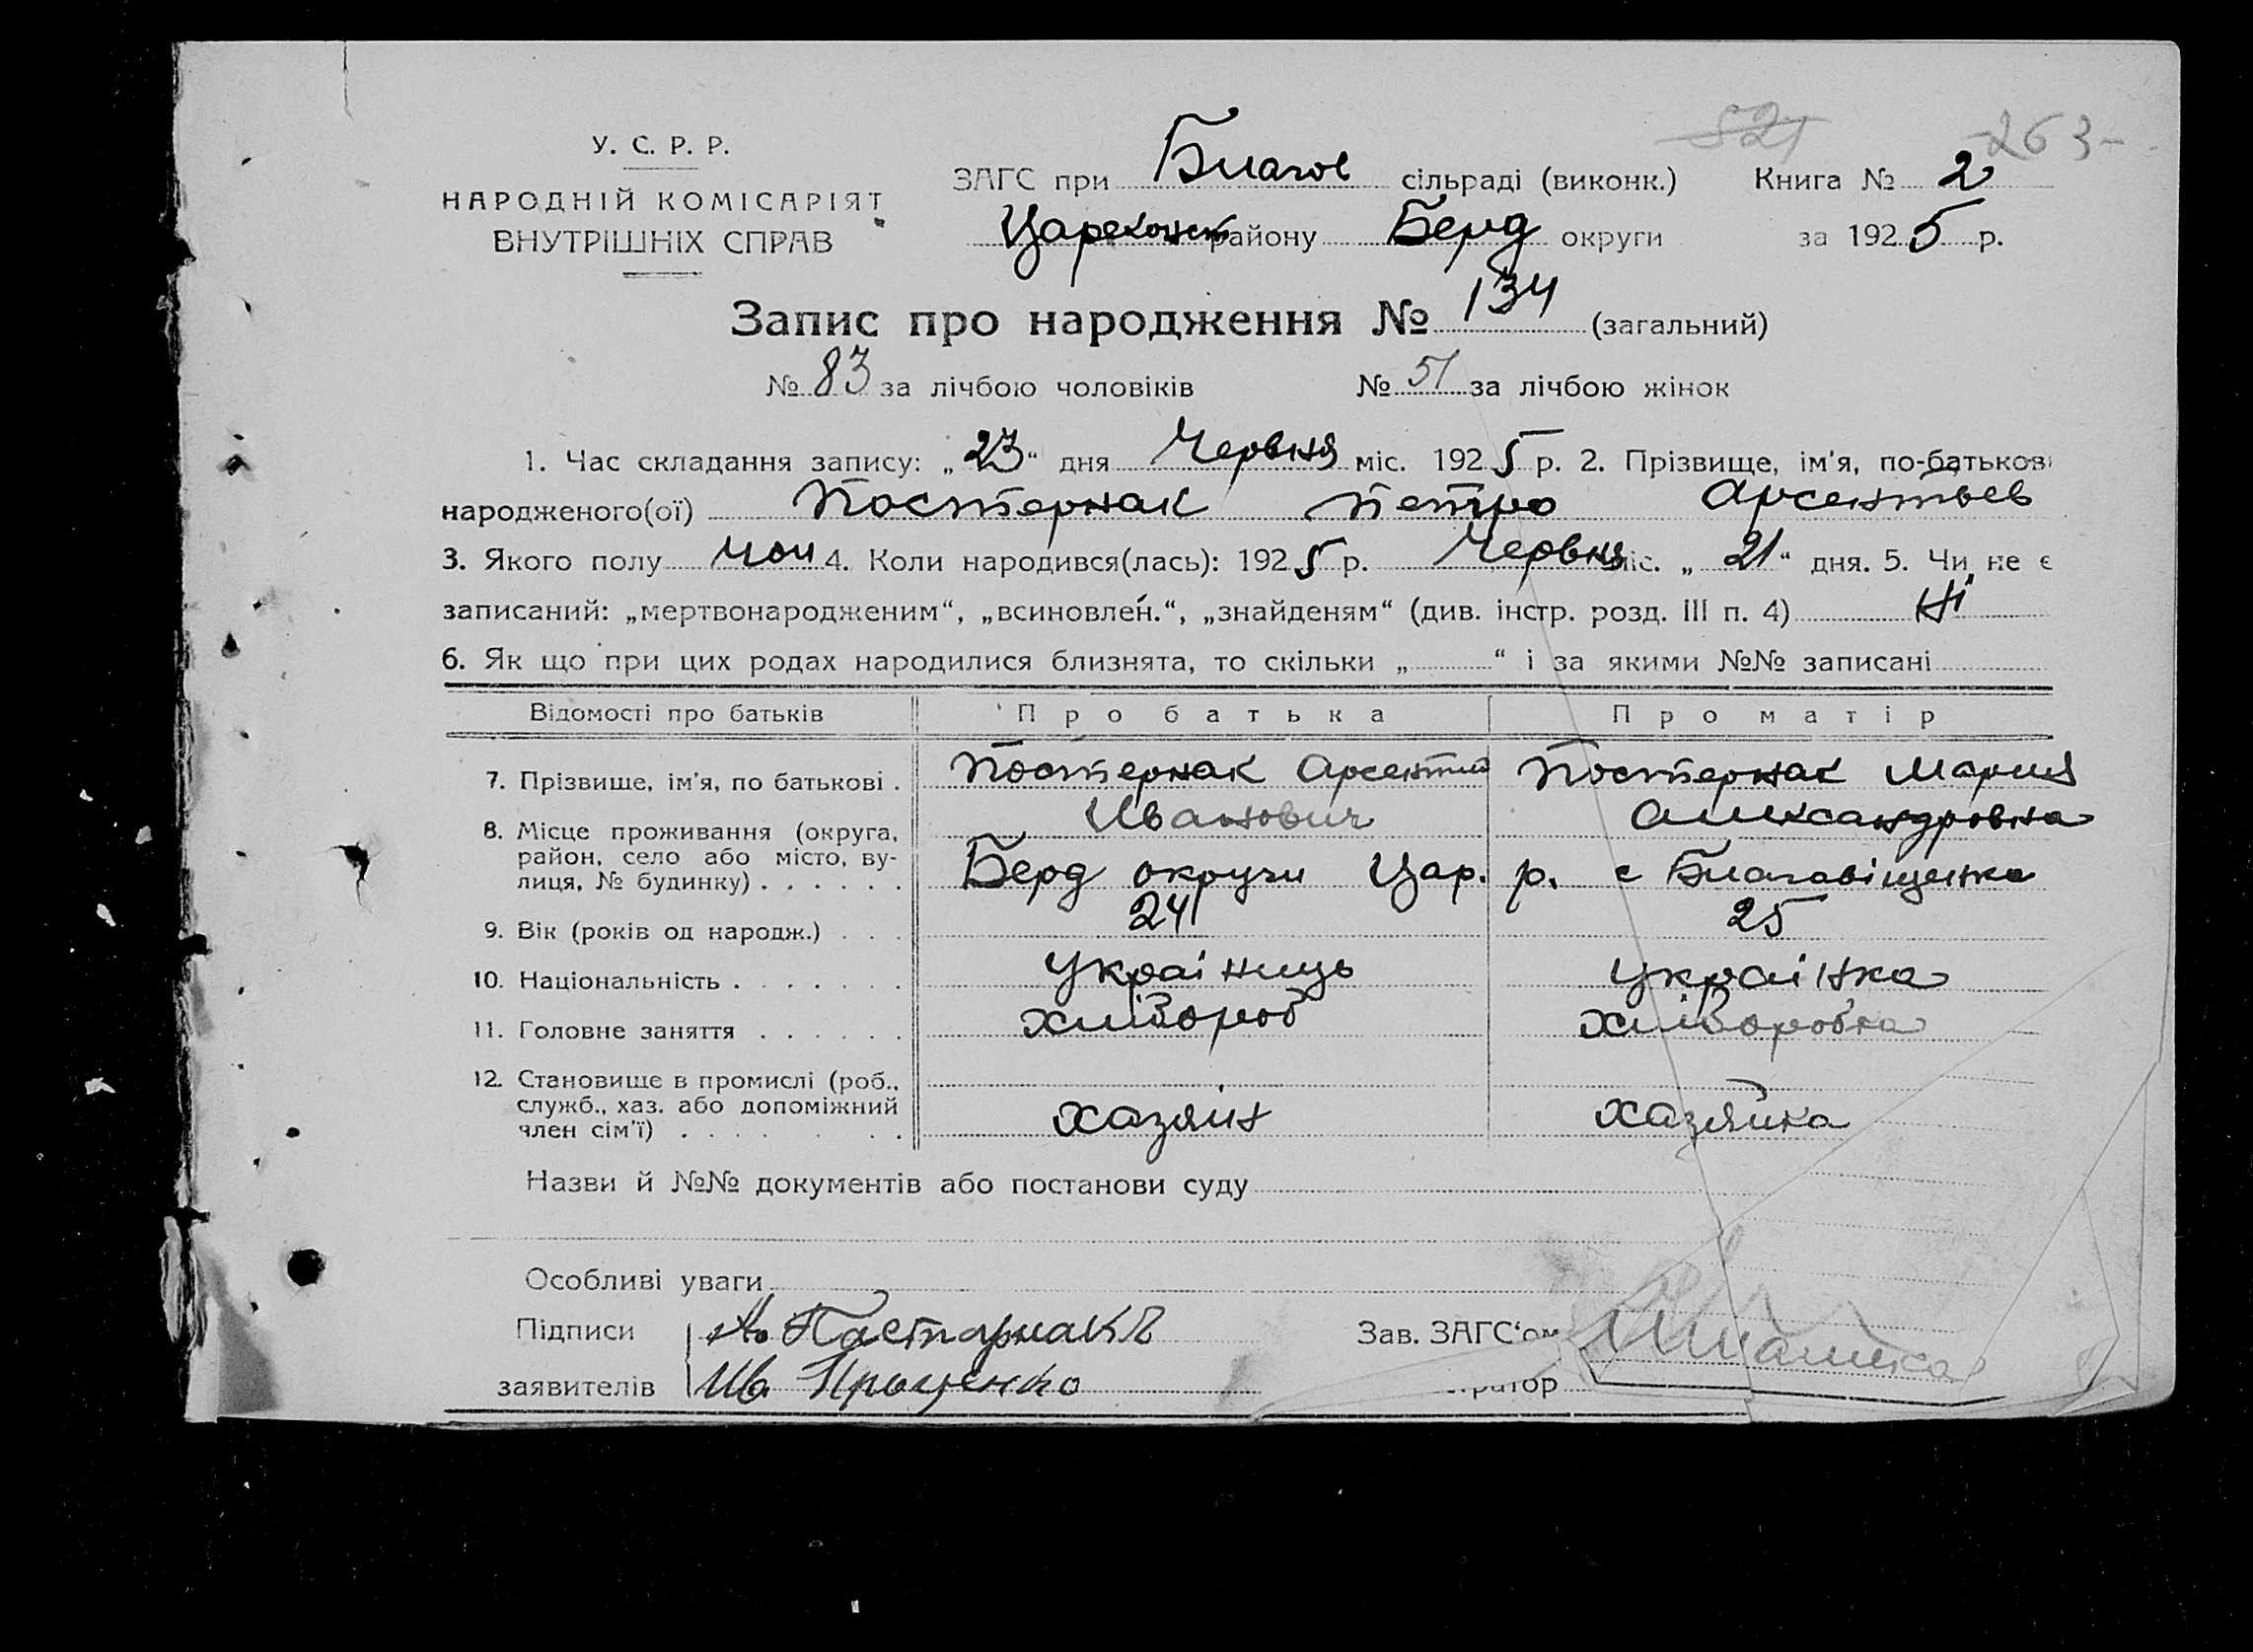 521 -263-
У. С. Р. Р.
НАРОДНІЙ КОМІСАРІЯТ
ВНУТРІШНІХ СПРАВ
ЗАГС при Благов сільраді (виконк.) Книга № 2
Цареконст району Берд округи за 1925 р.
Запис про народження № 134 (загальний)
№ 83 за лічбою чоловіків № 51 за лічбою жінок
1. Час складання запису: „23“ дня Червня міс. 1925 р. 2. Прізвище, ім'я, по-батькові
народженого(ої) Постернак Петро Арсентьев
3. Якого полу чол 4. Коли народився(лась): 1925 р. Червня міс. „21“ дня. 5. Чи не є
записаний: „мертвонародженим“, „всиновлен.“, „знайденям“ (див. інстр. розд. III п. 4) Ні
6. Як що при цих родах народилися близнята, то скільки „ “ і за якими №№ записані
Відомості про батьків Про батька Про матір
7. Прізвище, ім'я, по батькові . Постернак Арсентий Постернак Мария
Иванович Александровна
8. Місце проживання (округа,
район, село або місто, ву-
лиця, № будинку) . . . . . . Берд округи Цар. р. с Благавіщенка
9. Вік (років од народж.) . . . 24 25
10. Національність . . . . . . . Украінець Украінка
11. Головне заняття . . . . . . хлібороб хліборобка
12. Становище в промислі (роб.,
служб., хаз. або допоміжний
член сім'ї) . . . . . . . хазяін хазяйка
Назви й №№ документів або постанови суду
Особливі уваги
Підписи А. Пастарнакъ Зав. ЗАГС‘ом
заявителів Ив Проценко ратор